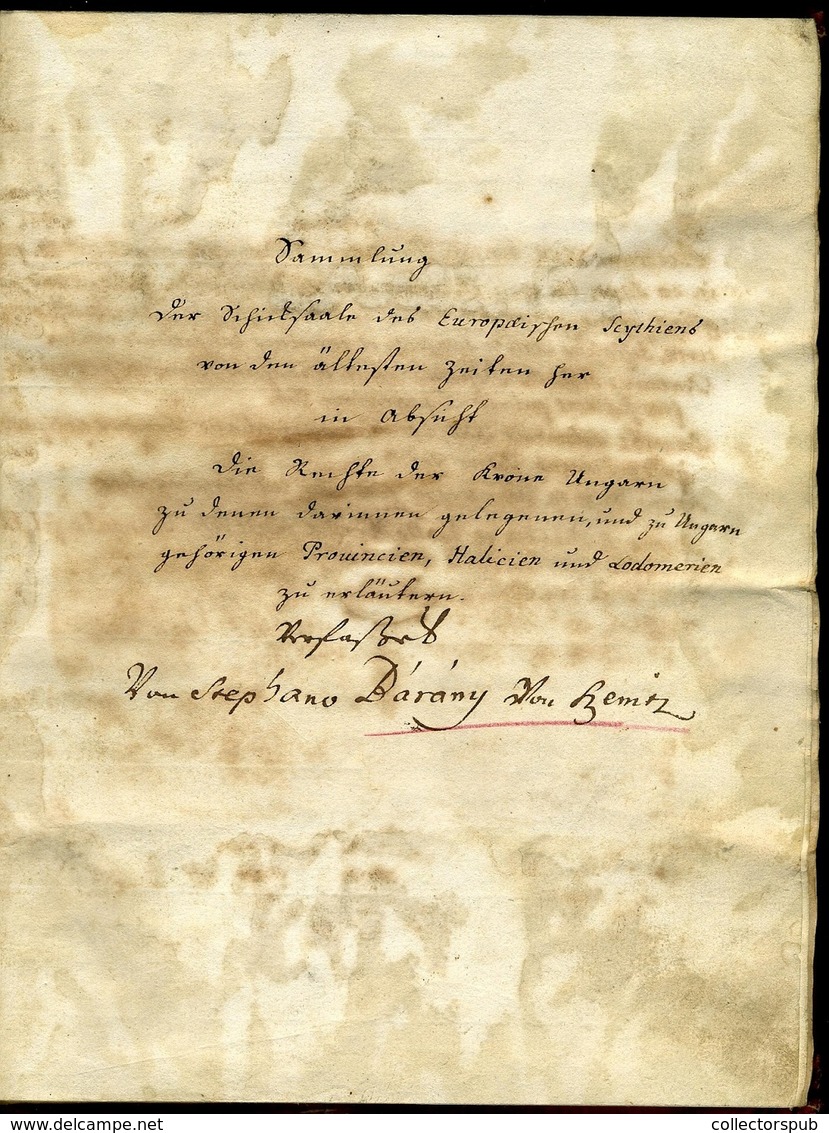 Sammlung
der Schicksaale des Europäischen Scythiens
von den ältesten Zeiten her
in Absicht
die Rechte der Krone Ungarn
zu denen darinnen gelegenen, und zu Ungarn
gehörigen Provincien, Halicien und Lodomerien
zu erläutern.
Verfasset
Von Stephano Dárány Von
www.delcampe.net
collectorspub